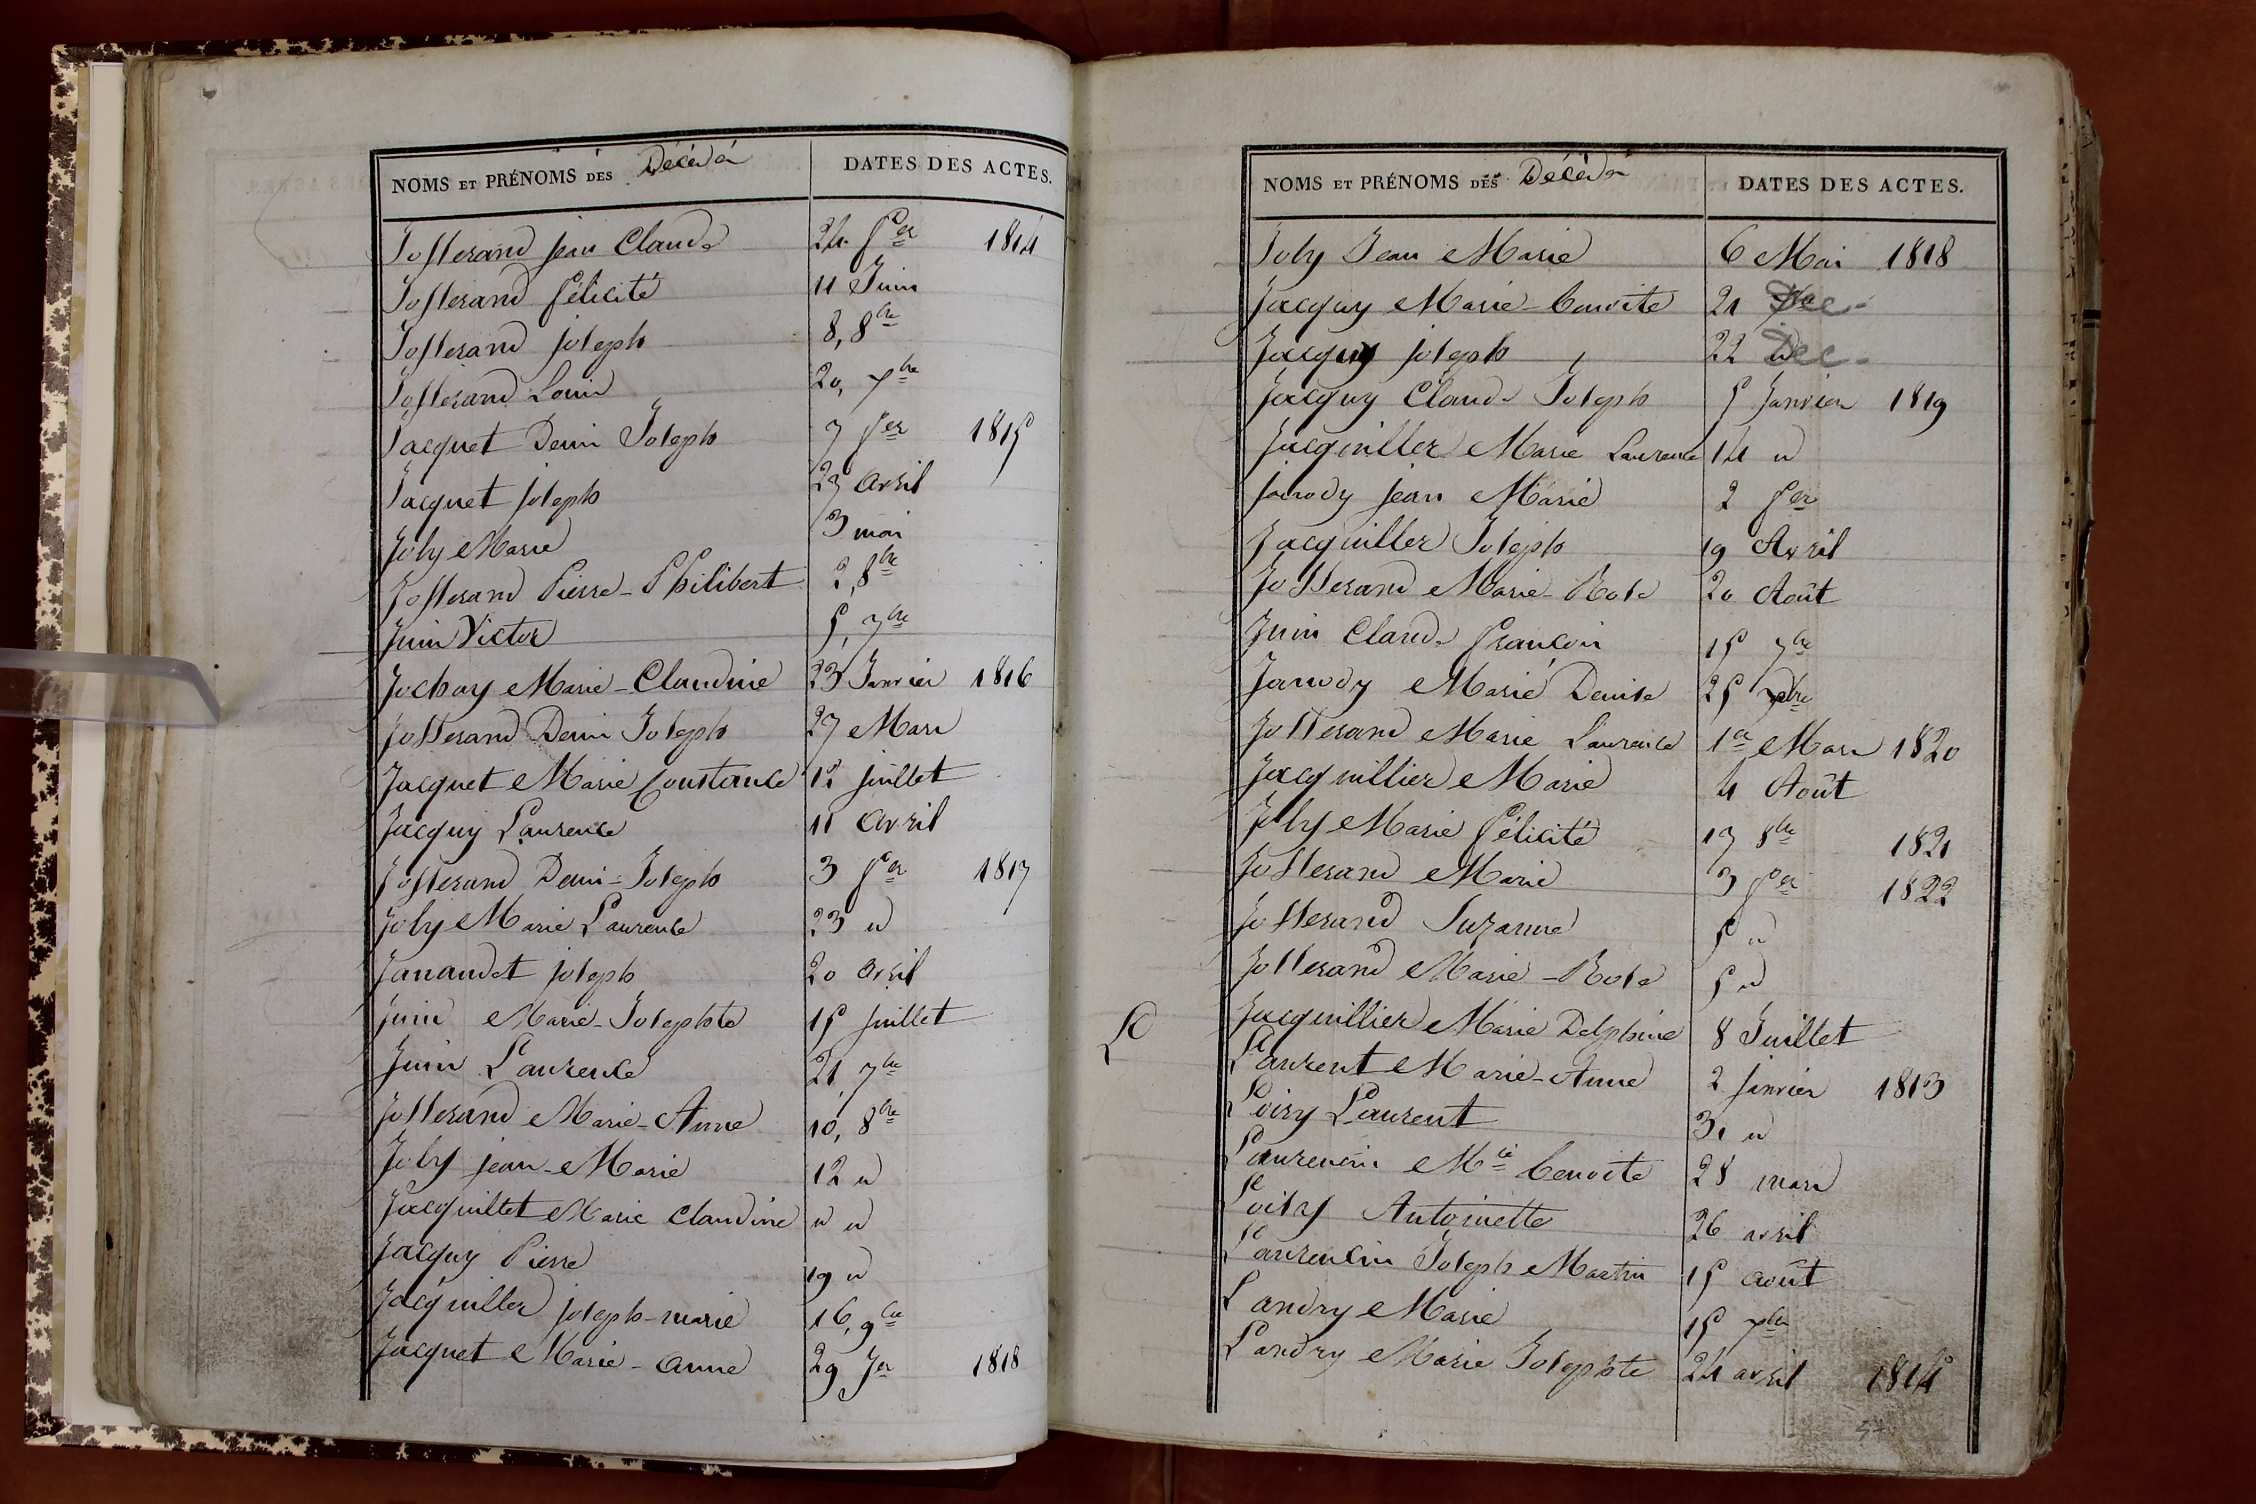 NOMS ET PRÉNOMS DES Décédés DATES DES ACTES.
Josserand jean Claude 24 fer 1814
Josserand félicité 11 Juin
Josserand joseph 8, 8bre
Josserand Louis 20, xbre
Jacquet Denis Joseph 7 fer 1815
Jacquet joseph 23 avril
Joly Marie 3 mai
Josserand Pierre-Philibert 2, 8bre
Juin Victor 5, 7bre
Jochay Marie-Claudine 23 Janvier 1816
Josserand Denis Joseph 27 Mars
Jacquet Marie Constance 12 juillet
Jacquy Laurence 11 avril
Josserand Denis-Joseph 3 fer 1817
Joly Marie Laurence 23 "
Janaudet joseph 20 avril
Juin Marie-Josephte 15 juillet
Juin Laurence 21, 7bre
Josserand Marie-Anne 10, 8bre
Joly jean-Marie 12 "
Jacquillet Marie Claudine " "
Jacquy Pierre 19 "
Jacquiller joseph-marie 16, 9bre
Jacquet Marie-anne 29 Jer 1818
NOMS ET PRÉNOMS DES Décédés DATES DES ACTES.
Joly Jean Marie 6 Mai 1818
Jacquy Marie-benoite 21 Dec-
Jacquy joseph 22 Dec-
Jacquy Claude Joseph 5 Janvier 1819
Jacquiller Marie Laurence 14 "
janody jean Marie 2 fer
Jacquiller Joseph 19 Avril
Josserand Marie-Rose 20 Août
Juin Claude françois 15 7bre
Janody Marie Denise 25 xbre
Josserand Marie Laurence 1er Mars 1820
Jacquillier Marie 4 Août
Joly Marie félicité 17 8bre 1821
Josserand Marie 3 fer 1822
Josserand Suzanne 5 "
Josserand Marie-Rose 5 "
Jacquillier Marie Delphine 8 Juillet
L
Laurent Marie-Anne 2 janvier 1813
Loisy Laurent 31 "
Laurencin Mie benoite 28 mars
Loisy Antoinette 26 avril
Laurencin Joseph Martin 15 août
Landry Marie 15 xbre
Landry Marie Josephte 24 avril 1814
57